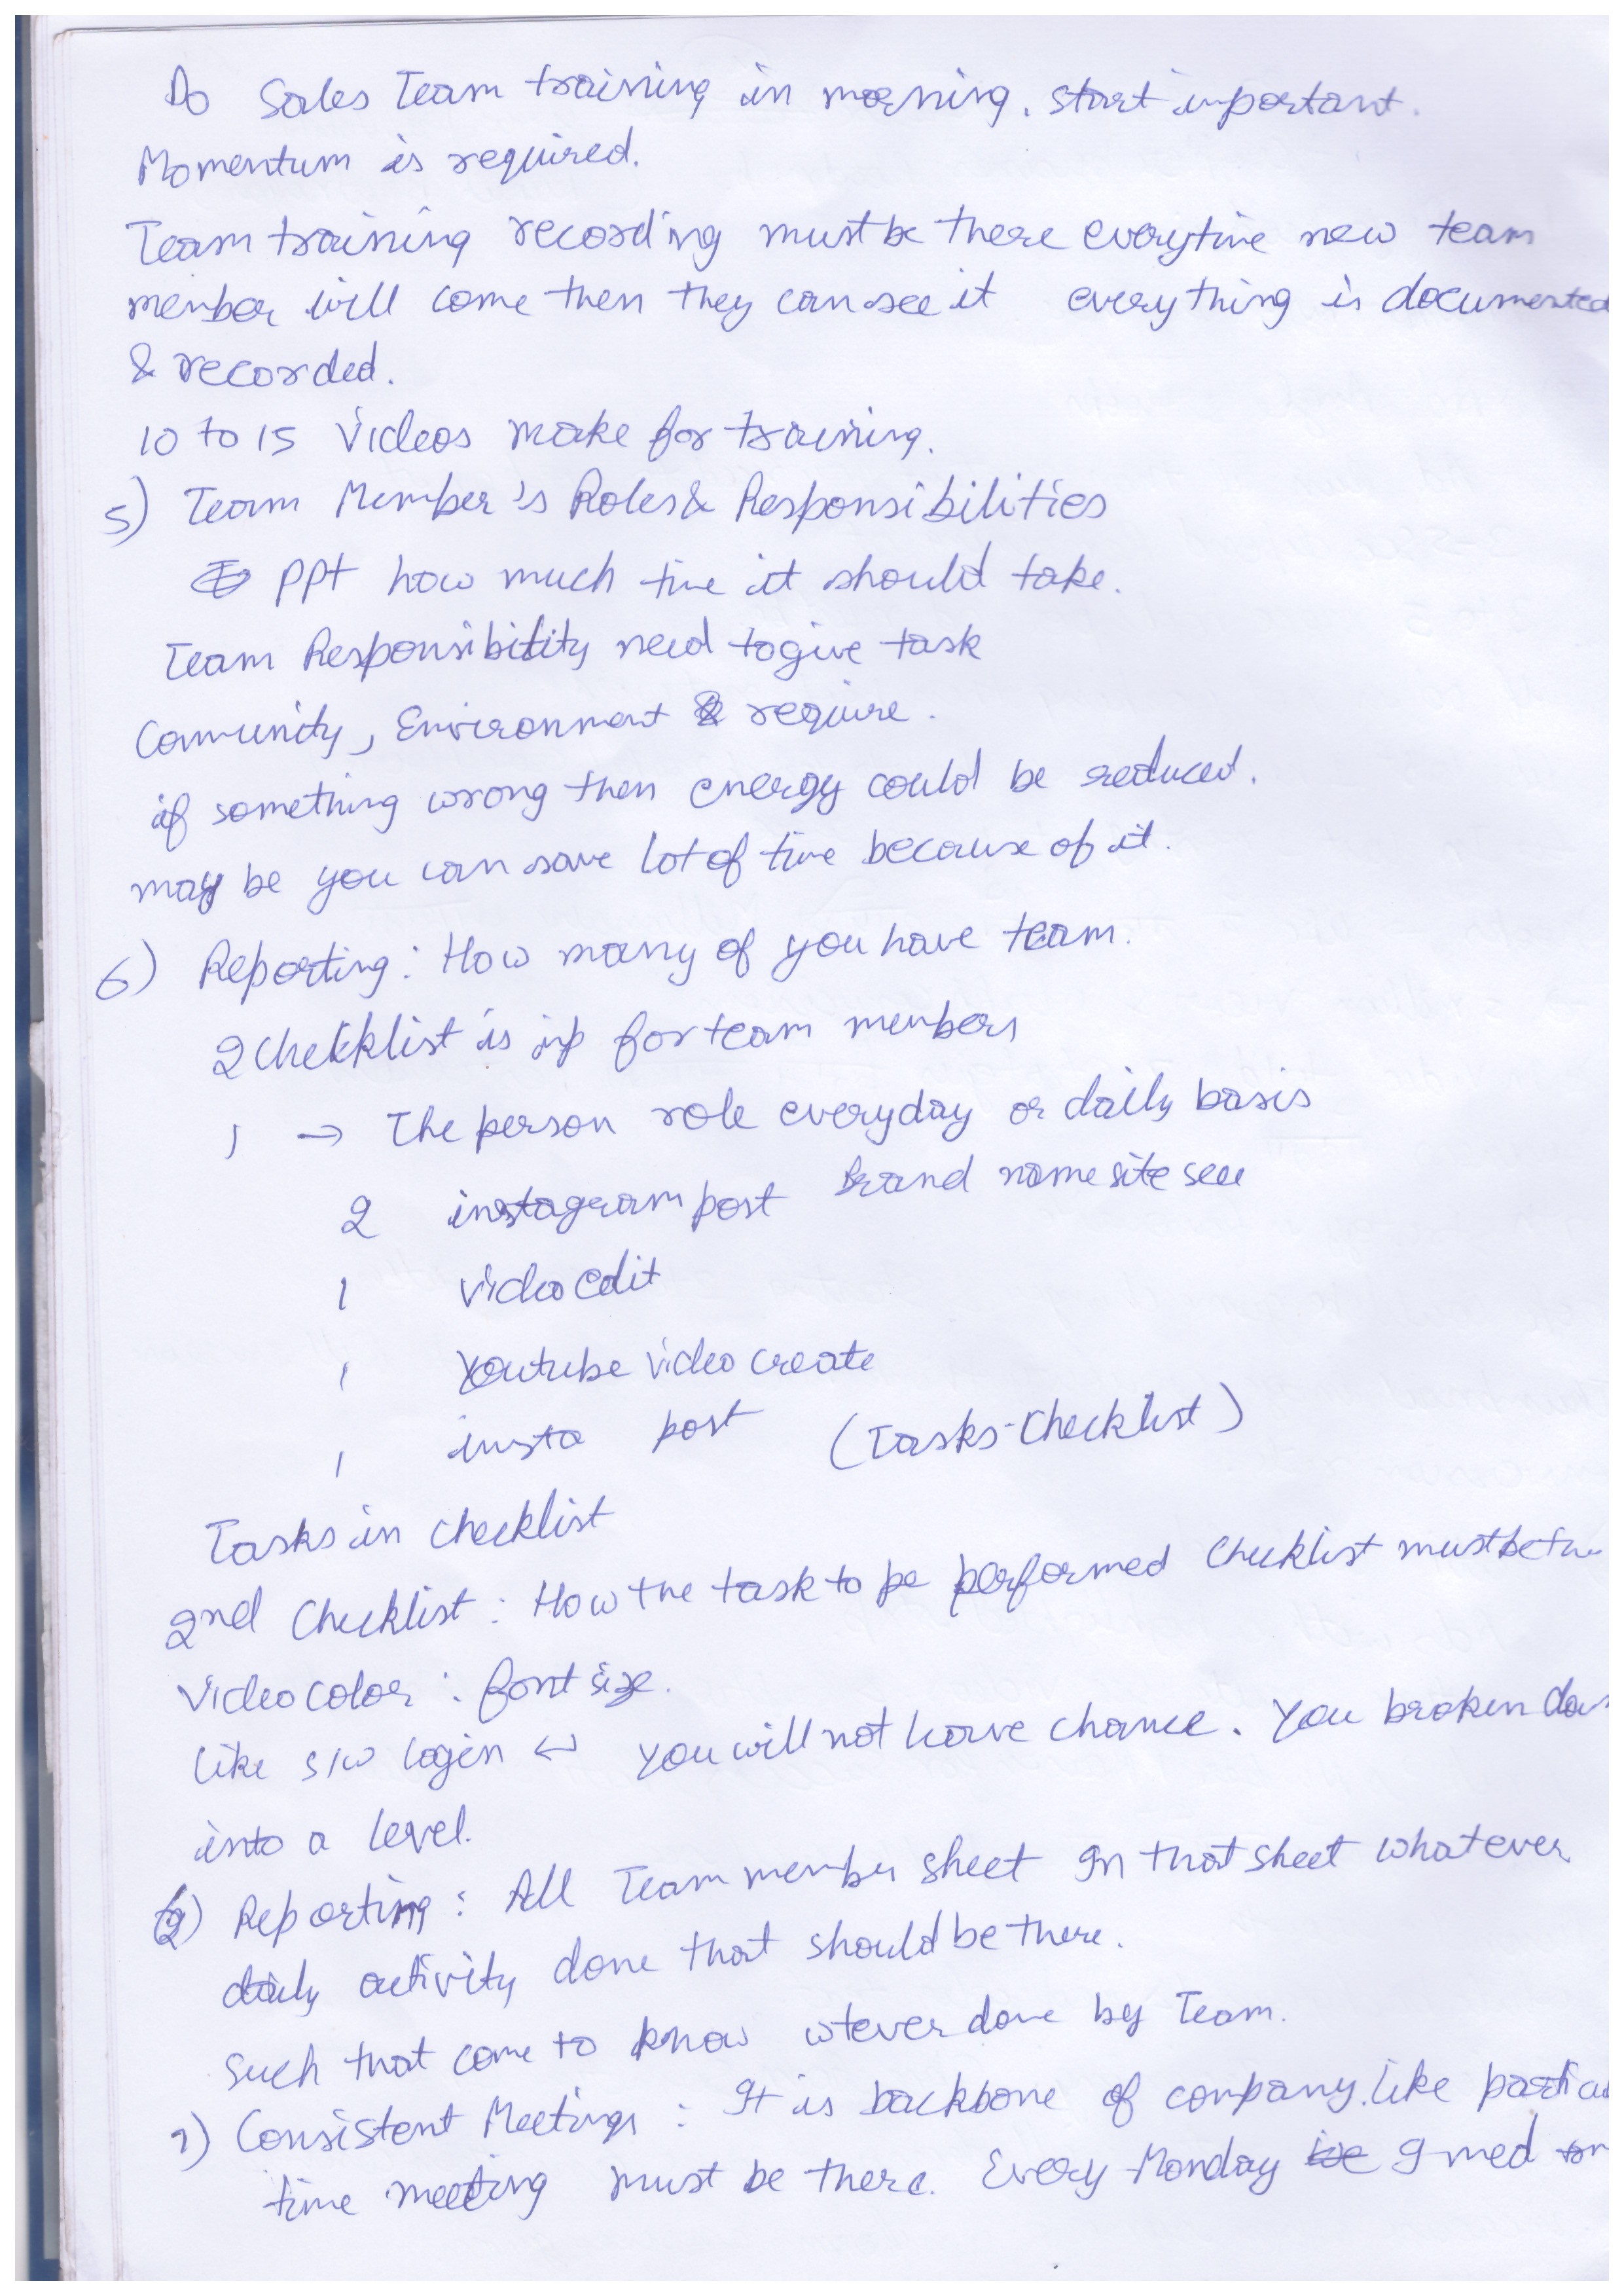 Do Sales Team training in morning. start important.
Momentum is required.
Team training recording must be there everytime new team
member will come then they can see it everything is documented
& recorded.
10 to 15 Videos make for training.
5) Team Member's Roles & Responsibilities
ppt how much time it should take.
Team Responsibility need to give task
Community, Environment & require.
if something wrong then energy could be reduced.
may be you can save lot of time because of it.
6) Reporting: How many of you have team.
2 checklist is imp for team members
1 → The person role everyday or daily basis
2 instagram post Brand name site see
1 video edit
1 Youtube video create
1 insta post (Tasks-Checklist)
Tasks in checklist
2nd Checklist: How the task to be performed checklist must be
Video color: font size.
like s/w login ↔ you will not leave chance. You broken
into a level.
6) Reporting: All Team member sheet In that sheet whatever
daily activity done that should be there.
Such that come to know wtever done by Team.
7) Consistent Meetings: It is backbone of company. like
time meeting must be there. Every Monday I med